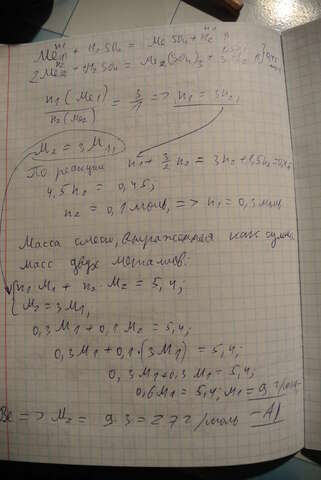 n1 n1
Me1 + H2SO4 = MeSO4 + H2
n2 1,5n2
2Me2 + 3H2SO4 = Me2(SO4)3 + 3H2
n1(Me1) / n2(Me2) = 3/1 => n1 = 3n2,
M2 = 3M1,
По реакции n1 + 3/2 n2 = 3n2 + 1,5n2 =
4,5n2 = 0,45;
n2 = 0,1 моль, => n1 = 0,3 моль
Масса смеси, выраженная как сумма
масс двух металлов:
{n1 M1 + n2 M2 = 5,4;
M2 = 3M1,
0,3M1 + 0,1M2 = 5,4;
0,3M1 + 0,1·(3M1) = 5,4;
0,3M1 + 0,3M1 = 5,4;
0,6M1 = 5,4; M1 = 9 г/моль -
Be => M2 = 9·3 = 27 г/моль - Al